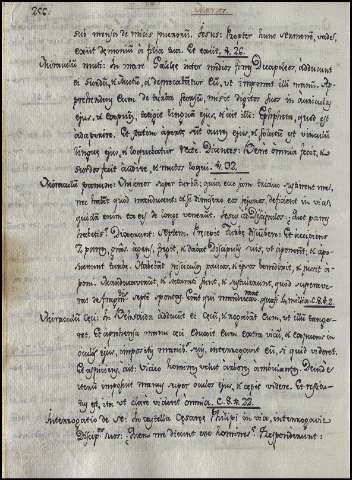 255
sui mensa de micis puerorum. Jesus: Propter hunc sermonem, vade,
exiit dæmonium à filia tua. Et exivit. v. 26.
Miraculum muti: In mare Galileæ inter medios fines Decapoleos, adducunt
ei surdum, & mutum, & deprecabantur Eum, ut imponat illi manum. Ap-
prehendens eum de turba seorsum, misit digitos suos in auriculas
ejus, & expuens, tetigit linguam ejus, & ait illi: Ephpheta, quod est
adaperire. Et statim apertæ sunt aures ejus, & solutum est vinculum
linguæ ejus, & loquebatur recte. Dicentes: Bene omnia fecit, &
surdos fecit audire, & mutos loqui. v. 32.
Miraculum panum: Misereor super turba, quia ecce jam triduo sustinent me,
nec habent quod manducent: & si dimisero eos jejunos, deficient in via,
quidam enim ex eis de longe venerunt. Jesus ad Discipulos: quot panes
habetis? Dixerunt: Septem. Præcepit turbæ discumbere. Et accipiens
7 panes, gratias agens, fregit, & dabat Discipulis suis, ut apponerent, & ap-
posuerunt turbæ. Habebant pisciculos paucos, & ipsos benedixit, & jussit ap-
poni. Manducaverunt, & saturati sunt, & sustulerunt, quod superave-
rat de fragmentis septem sportas. Erant qui manducaverant quasi 4 millia. C. 8. v. 2.
Miraculum Cæci: In Bethsaida adducunt ei cæcum, & rogabant Eum, ut illum tange-
ret. Et apprehensa manu cæci eduxit eum extra vicum, & expuens in
oculos ejus, impositis manibus suis, interrogavit eum, si quid videret.
Et aspiciens, ait: Video homines velut arbores ambulantes. Deinde i-
terum imposuit manus super oculos ejus, & cæpit videre. Et restitu-
tus est, ita ut clare videret omnia. C. 8. v. 22.
Interrogatio de se: In castella Cæsareæ Philippi in via, interrogavit
Discipulos suos: Quem me dicunt esse homines? Responderunt: